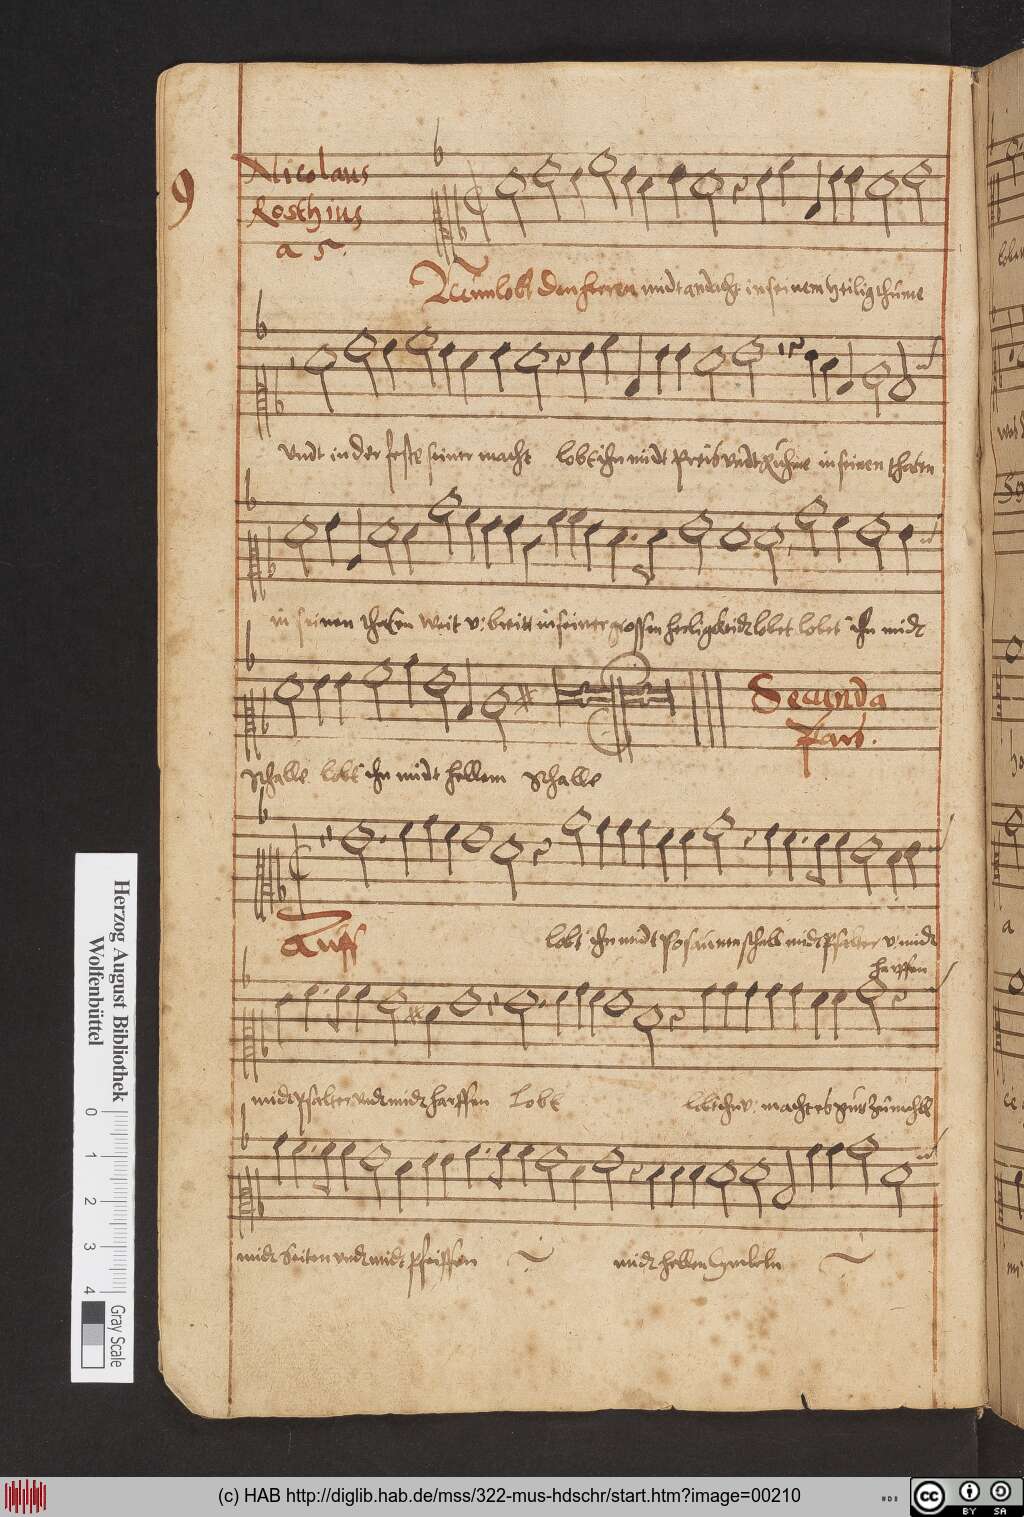 9
Nicolaus
Rosthius
a 5.
Nun lobt den herren midt andacht in seinem heiligthume
undt in der feste seiner macht lobt ihn midt preis undt ruhme in seinen thaten
in seinen thaten weit v: breit in seiner grossen heiligkeidt lobet lobet ihn midt
Secunda
Pars.
schalle lobt ihn midt hellem schalle
Auff
lobt ihn midt posaunen schall midt psalter v: midt
harpffen
midt psalter undt midt harpffen lobt lobt ihn v:
midt seiten undt midt pfeiffen midt hellen
Herzog August Bibliothek
Wolfenbüttel
0 1 2 3 4
Gray Scale
(c) HAB http://diglib.hab.de/mss/322-mus-hdschr/start.htm?image=00210
cc BY SA